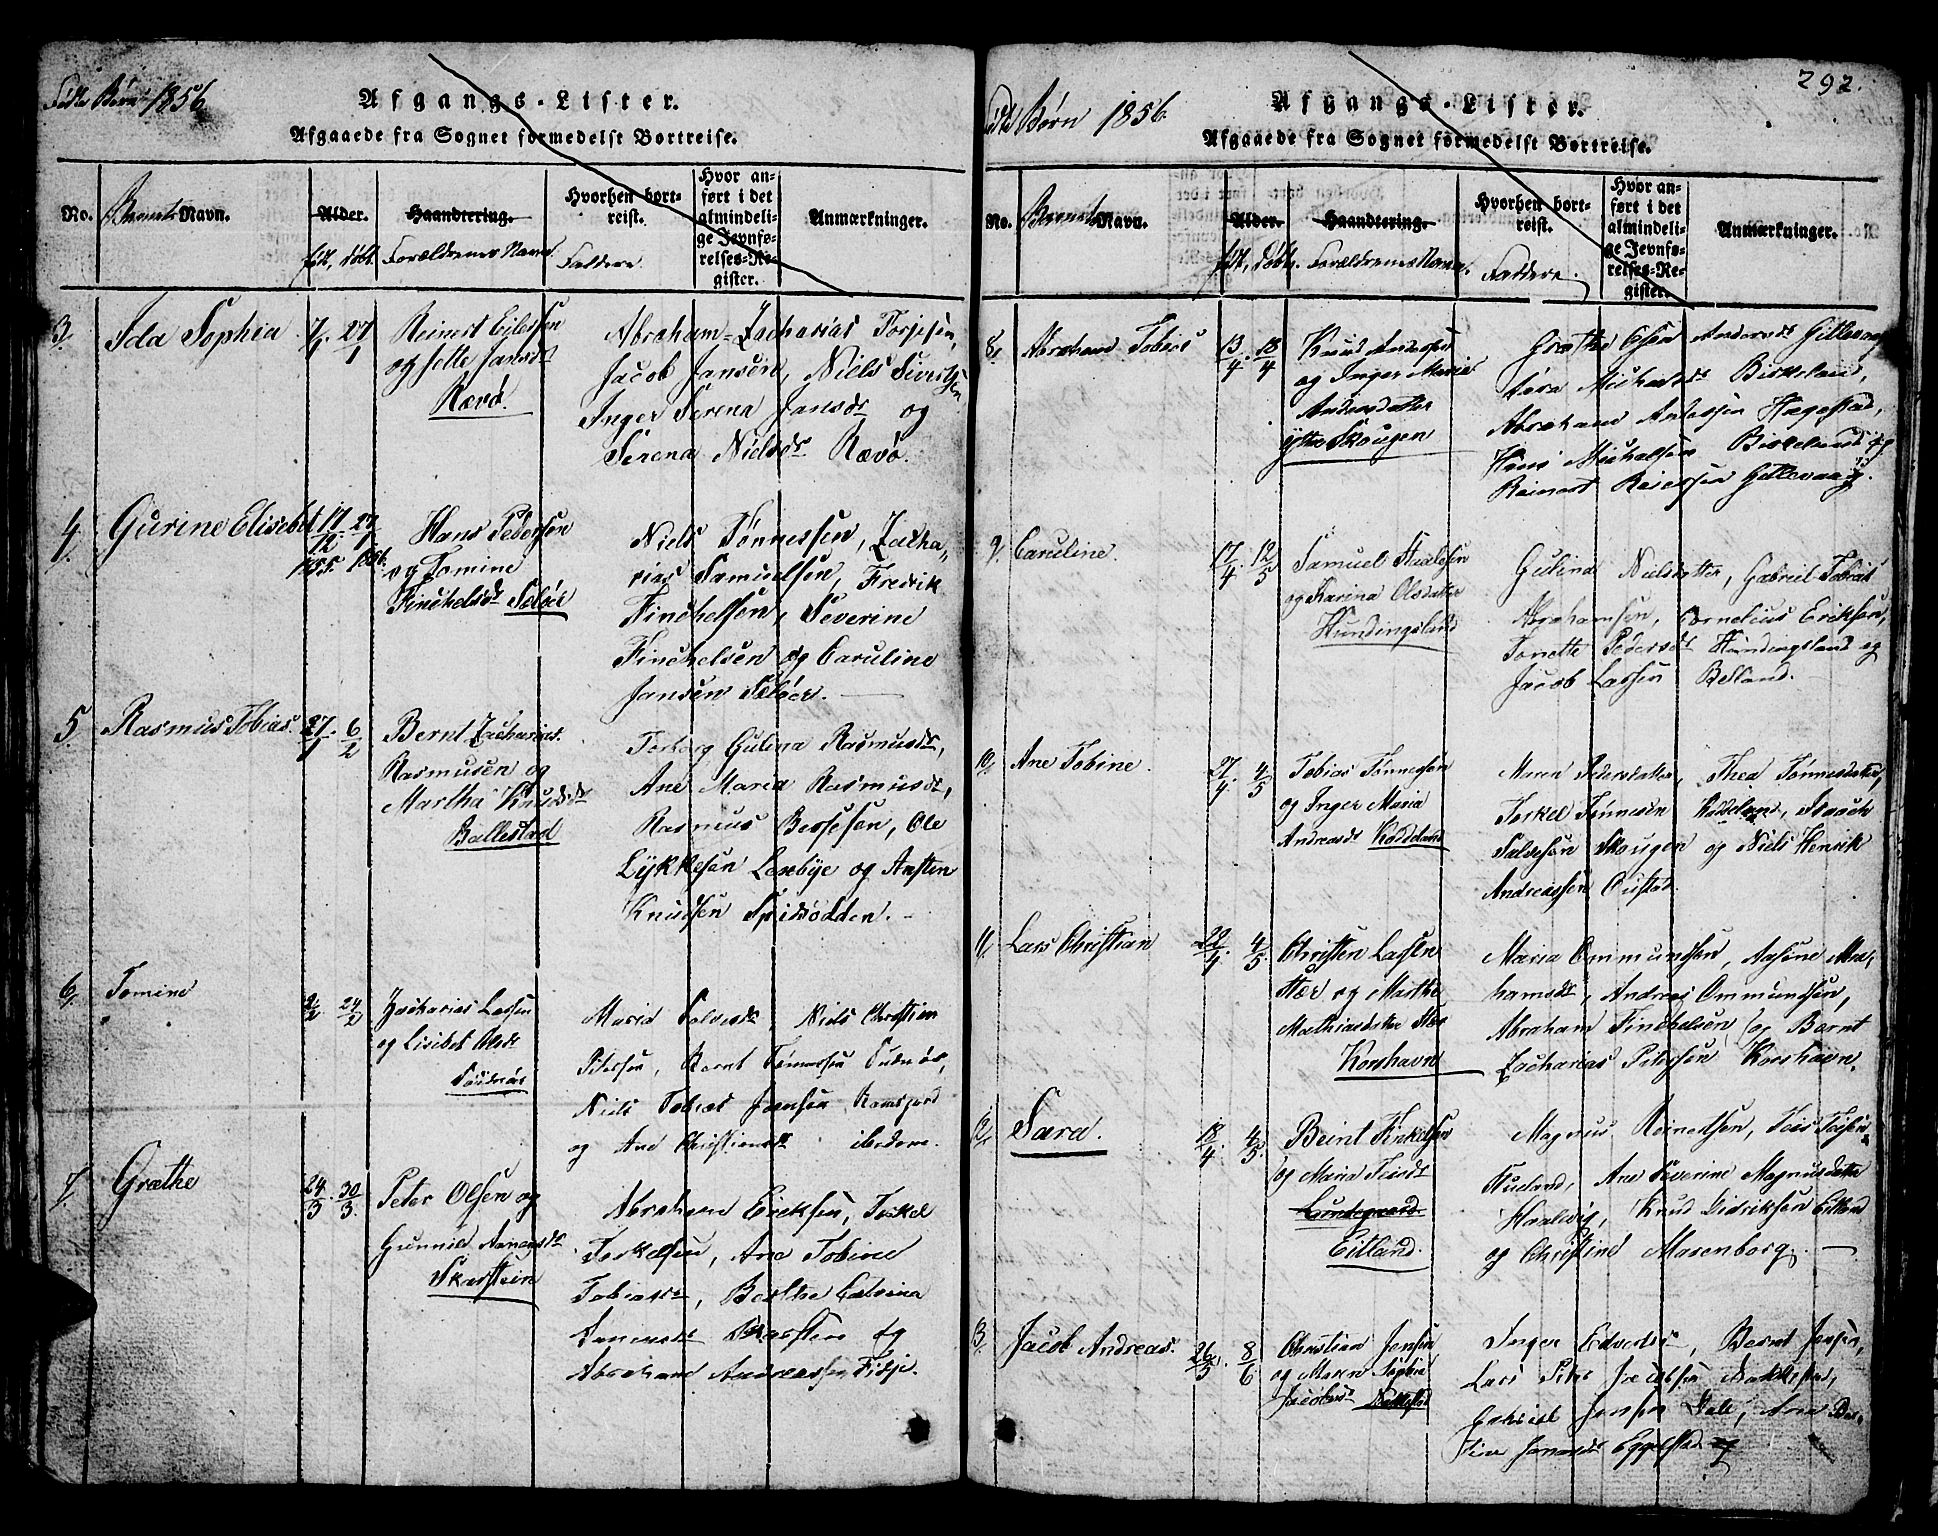 Fødte Børn 1856
Afgangs-Lister.
Afgaaede fra Sognet formedelst Bortreise.
No.
Barnets Navn.
Alder.
født, døbt.
Haandtering.
Forældrenes Navne.
Hvorhen bort-
reist.
Faddere.
Hvor an-
ført i det
almindeli-
ge Jevnfø-
relses-Re-
gister.
Anmærkninger.
3.
Ida Sophia
7/1. 27/1
Reinert Eilersen
og Jette Jansdr
Rævø.
Abraham Zacharias Torjesen,
Jacob Jansen, Niels Sivertsen
Inger Serena Jansdr og
Serena Nielsdr Rævø.
4.
Gurine Elisebet
17/12. 27/1.
1855. 1856.
Hans Pedersen
og Tomine
Finchelsdr Seløer
Niels Tønnessen, Zacha-
rias Samuelsen, Fredrik
Finchelsen, Severine
Finchelsen og Caruline
Jansen Seløer.
5.
Rasmus Tobias.
27/1. 6/2
Bernt Zacharias
Rasmusen og
Martha Knudsdr
Ballestad
Torborg Gulina Rasmusdr,
Ane Maria Rasmusdr,
Rasmus Bessesen, Ole
Lykkesen Loxebye og Austen
Knudsen Spidsodden.
6.
Tomine
2/2 24/2
Zacharias Lassen
og Lisebet Olsdr
Maria Salvesdr, Niels Christian
Petersen, Bernt Tønnessen
Niels Tobias Jansen Ramsfjord
og Ane Christiansdr ibidem.
7.
Grethe
24/3. 30/3.
Peter Olsen og
Gunnild Aanensdr
Skarstein
Abraham Ericksen, Torkel
Torkelsen, Ane Tobine
Tobiasdr, Berthe Calvina
Aanensdr og
Abraham Andreassen Fidje.
292.
Fødte Børn 1856
Afgangs-Lister.
Afgaaede fra Sognet formedelst Bortreise.
No.
Barnets Navn.
Alder.
født, døbt.
Haandtering.
Forældrenes Navne.
Hvorhen bort-
reist.
Faddere.
Hvor an-
ført i det
almindeli-
ge Jevnfø-
relses-Re-
gister.
Anmærkninger.
8.
Abraham Tobias
13/4. 18/4
Knud Andersen
og Inger Marie
Andersdatter
ytre Skougen
Grethe Elen Andersdr Gittevaag
Michaelsdr Birkeland,
Abraham Antossen Hægestad,
Hans Michaelsen Birkeland og
Reinert Reiersen Gittevaag.
9.
Caruline.
17/4. 12/5
Samuel
og Karina Olsdatter
Hundingsland
Gulina Nielsdatter, Gabriel Tobias
Abrahamsen, Cornelius Ericksen,
Tonette Pedersdr Hundingsland og
Jacob Lassen Belland.
10.
Ane Tobine.
27/4. 4/5
Tobias Tønnessen
og Inger Maria
Andreasdr Koddeland
Maren Pedersdatter, Thea Tønnesdatter,
Torkel Tønnesen Koddeland,
Salvesen Skougen og Niels Henrik
Andreassen Oustad.
11.
Lars Christian
22/4. 4/5
Christen Lassen
Stær og Marthe
Mathiasdatter
Korshavn
Maria Ommundsen, Aasine Abra-
hamsdr, Andreas Ommundsen,
Abraham Finchelsen og Bernt
Zacharias Petersen Korshavn.
12.
Sara.
18/4. 4/5.
Beint
og Maria
Lundegaard
Eitland.
Magnus Reinertsen,
Ane Severine Magnusdatter
Knud Didriksen Eitland
og Christine Masenborg.
13.
Jacob Andreas.
26/5. 8/6
Christian Jensen
og Maren Sophie
Jacobsdr
Inger Edvardsdr, Bernt Jensen,
Lars Peter Jacobsen
Gabriel Jensen Dale, Ane
Jonasdr Eggelstad